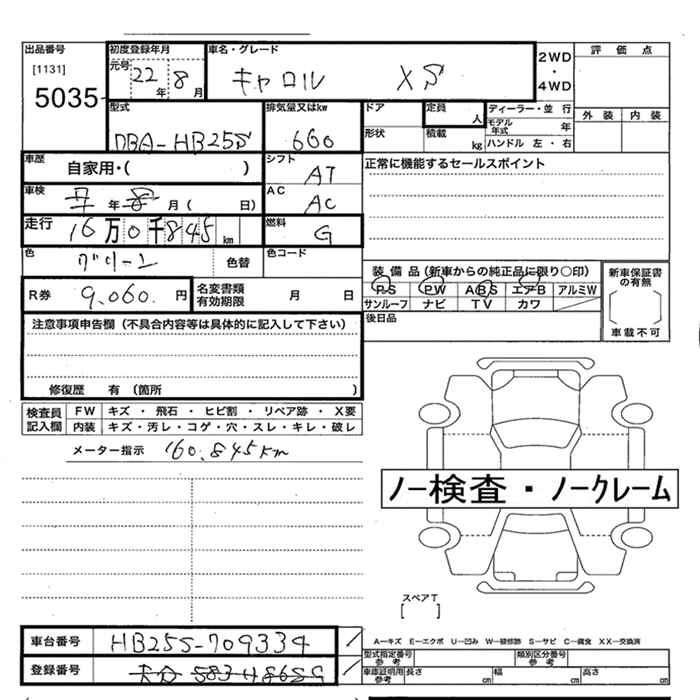 出品番号 初度登録年月 車名・グレード 2WD・4WD 評価点
[1131] 元号 22年 8月 キャロル XS
5035
型式 排気量又はkw ドア 定員 人 ディーラー・並行 外装 内装
DBA-HB25S 660 形状 積載 kg モデル年式 年
ハンドル 左・右
車歴 自家用・( ) シフト AT 正常に機能するセールスポイント
車検 年 月 ( 日) AC AC
走行 16万0千845km 燃料 G
色 グリーン 色替 色コード
装備品(新車からの純正品に限り〇印) 新車保証書の有無
R券 9,060.円 名変書類有効期限 月 日 PS PW ABS エアB アルミW
サンルーフ ナビ TV カワ 車載不可
注意事項申告欄(不具合内容等は具体的に記入して下さい) 後日品
修復歴 有(箇所 )
検査員記入欄 FW キズ・飛石・ヒビ割・リペア跡・X要
内装 キズ・汚レ・コゲ・穴・スレ・キレ・破レ
メーター指示 160,845km
ノー検査・ノークレーム
スペアT
[ ]
車台番号 HB25S-709334 A−キズ E−エクボ U−凹み W−補修跡 S−サビ C−腐食 XX−交換済
型式指定番号 参考 類別区分番号 参考
登録番号 車庫証明用 参考 長さ cm 幅 cm 高さ cm